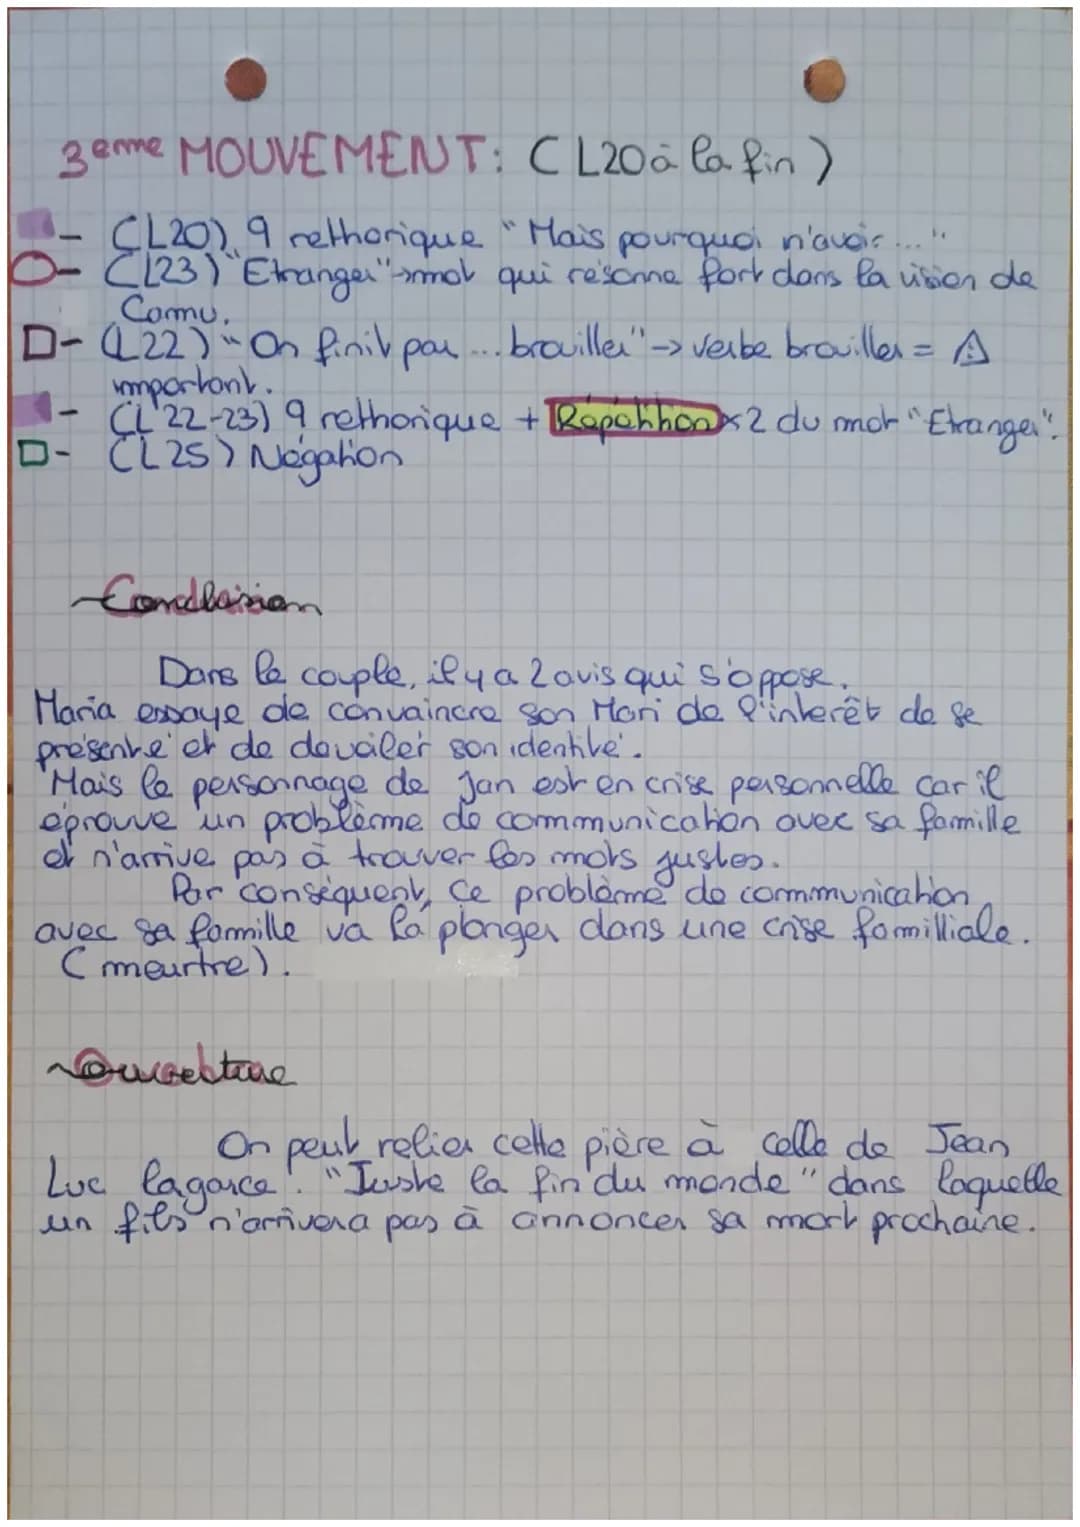 3eme MOUVEMENT: (L20 à la fin)
- (L20) q rethorique "Mais pourquoi n'avoir..."
- (L23) "Etranger" → mot qui résonne fort dans la vision de
Camu.
- (L22) "On finit par ... brouiller" → verbe brouiller = ⚠
important.
- (L 22-23) q rethorique + Répétition x2 du mot "Etranger".
- (L25) Négation
Conclusion
Dans le couple, il y a 2 avis qui s'oppose.
Maria essaye de convaincre son Mari de l'interêt de se
présenté et de devoiler son identité.
Mais le personnage de Jan est en crise personnelle car il
éprouve un problème de communication avec sa famille
et n'arrive pas à trouver les mots justes.
Par conséquent, ce problème de communication
avec sa famille va la plonger dans une crise familliale.
(meurtre).
Ouverture
On peut relier cette pière à celle de Jean
Luc lagarce. "Juste la fin du monde" dans laquelle
un fils n'arrivera pas à annoncer sa mort prochaine.